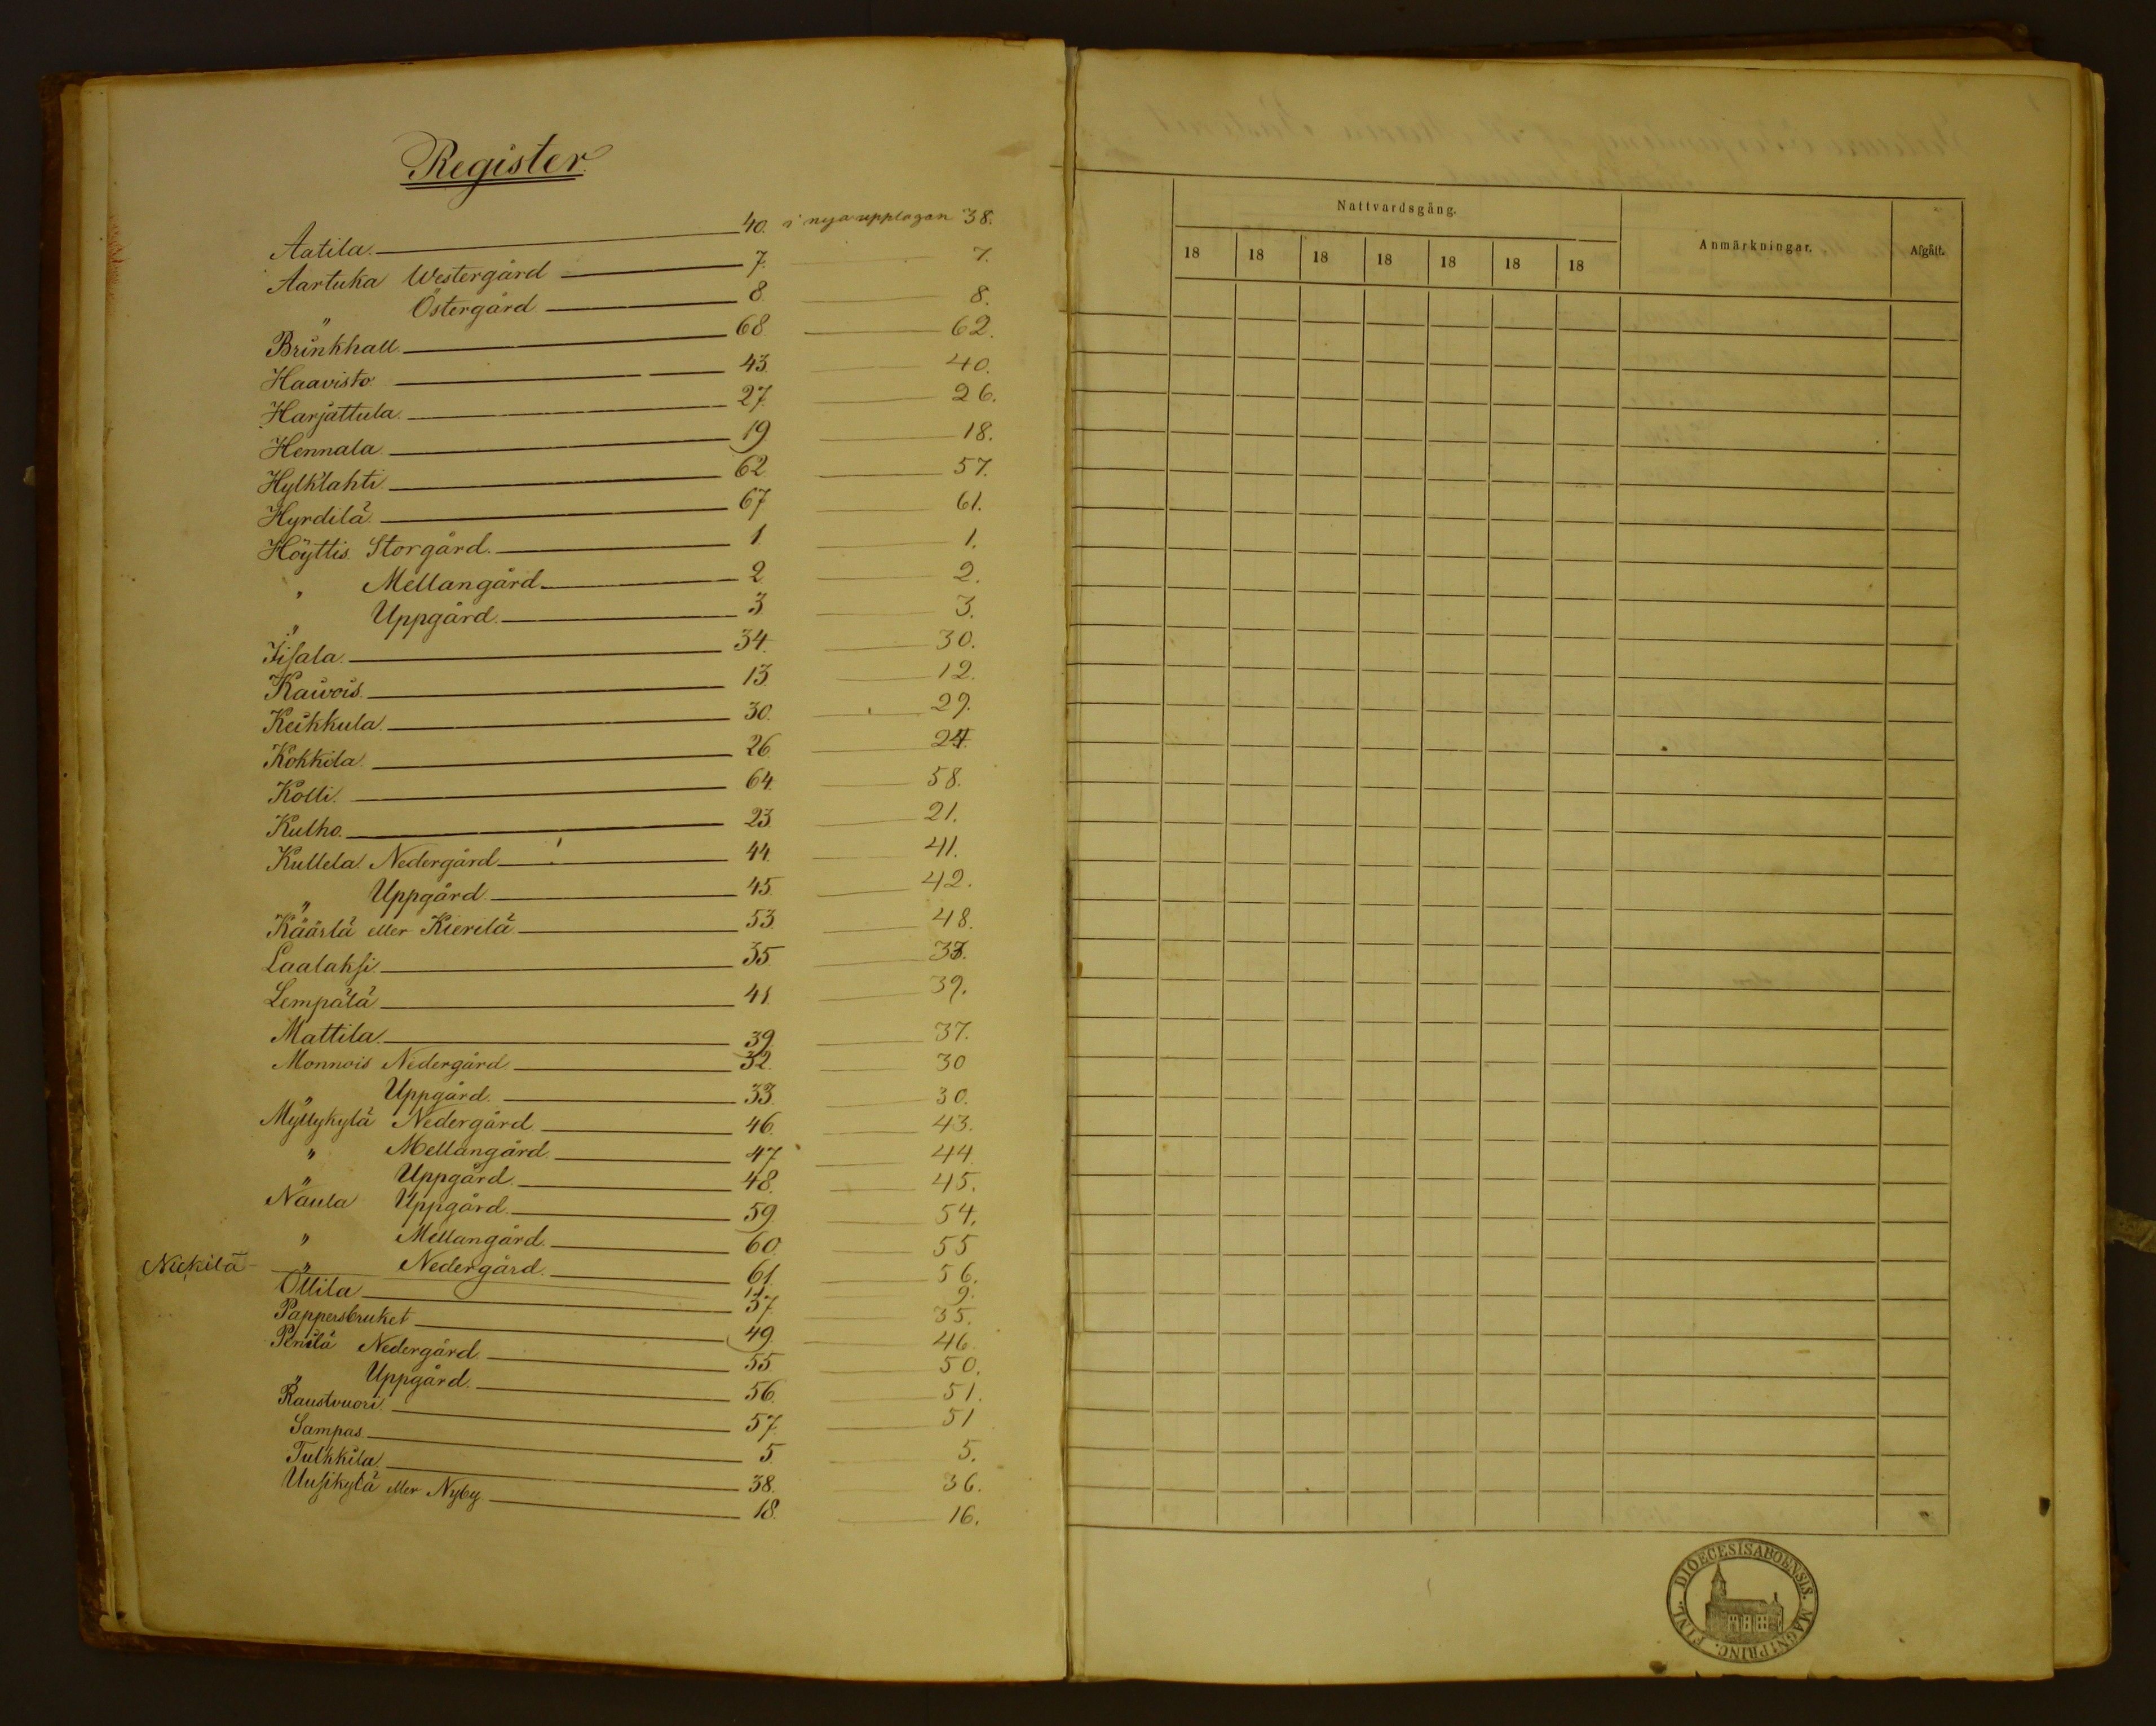 Register.
Aatila. 40. i nya upplagan 38.
Aartuka Westergård 7. 7.
" Östergård 8. 8.
Brinkhall. 68. 62.
Haavisto. 43. 40.
Harjattula. 27. 26.
Hennala 19 18.
Hylklahti 62. 57.
Hyrdilä. 67 61.
Höyttis Storgård. 1. 1.
" Mellangård 2. 2.
" Uppgård. 3 3.
Iisala. 34. 30.
Kaivois. 13. 12.
Keikkula. 30. 29.
Kokkila. 26. 24.
Kolli. 64. 58.
Kulho. 23. 21.
Kullela Nedergård 44. 41.
" Uppgård 45. 42.
Käärlä eller Kierilä 53. 48.
Laalaksi. 35 33.
Lempälä 41. 39.
Mattila. 39. 37.
Monnois Nedergård 32. 30
" Uppgård. 33. 30.
Myllykylä Nedergård 46. 43.
" Mellangård. 47 44.
" Uppgård. 48. 45.
Naula Uppgård. 59. 54.
" Mellangård. 60. 55
" Nedergård. 61. 56.
Nickilä 11. 9.
Ollila 37. 35.
Pappersbruket 49. 46.
Penilä Nedergård. 55 50.
" Uppgård. 56. 51.
Raustvuori. 57. 51
Sampas 5. 5.
Tulkkila. 38. 36.
Uusikylä eller Nyby. 18. 16.
Nattvardsgång. Anmärkningar. Afgått.
18 18 18 18 18 18 18
DIOECESIS ABOENSIS. MAGN: PRINC. FINL.